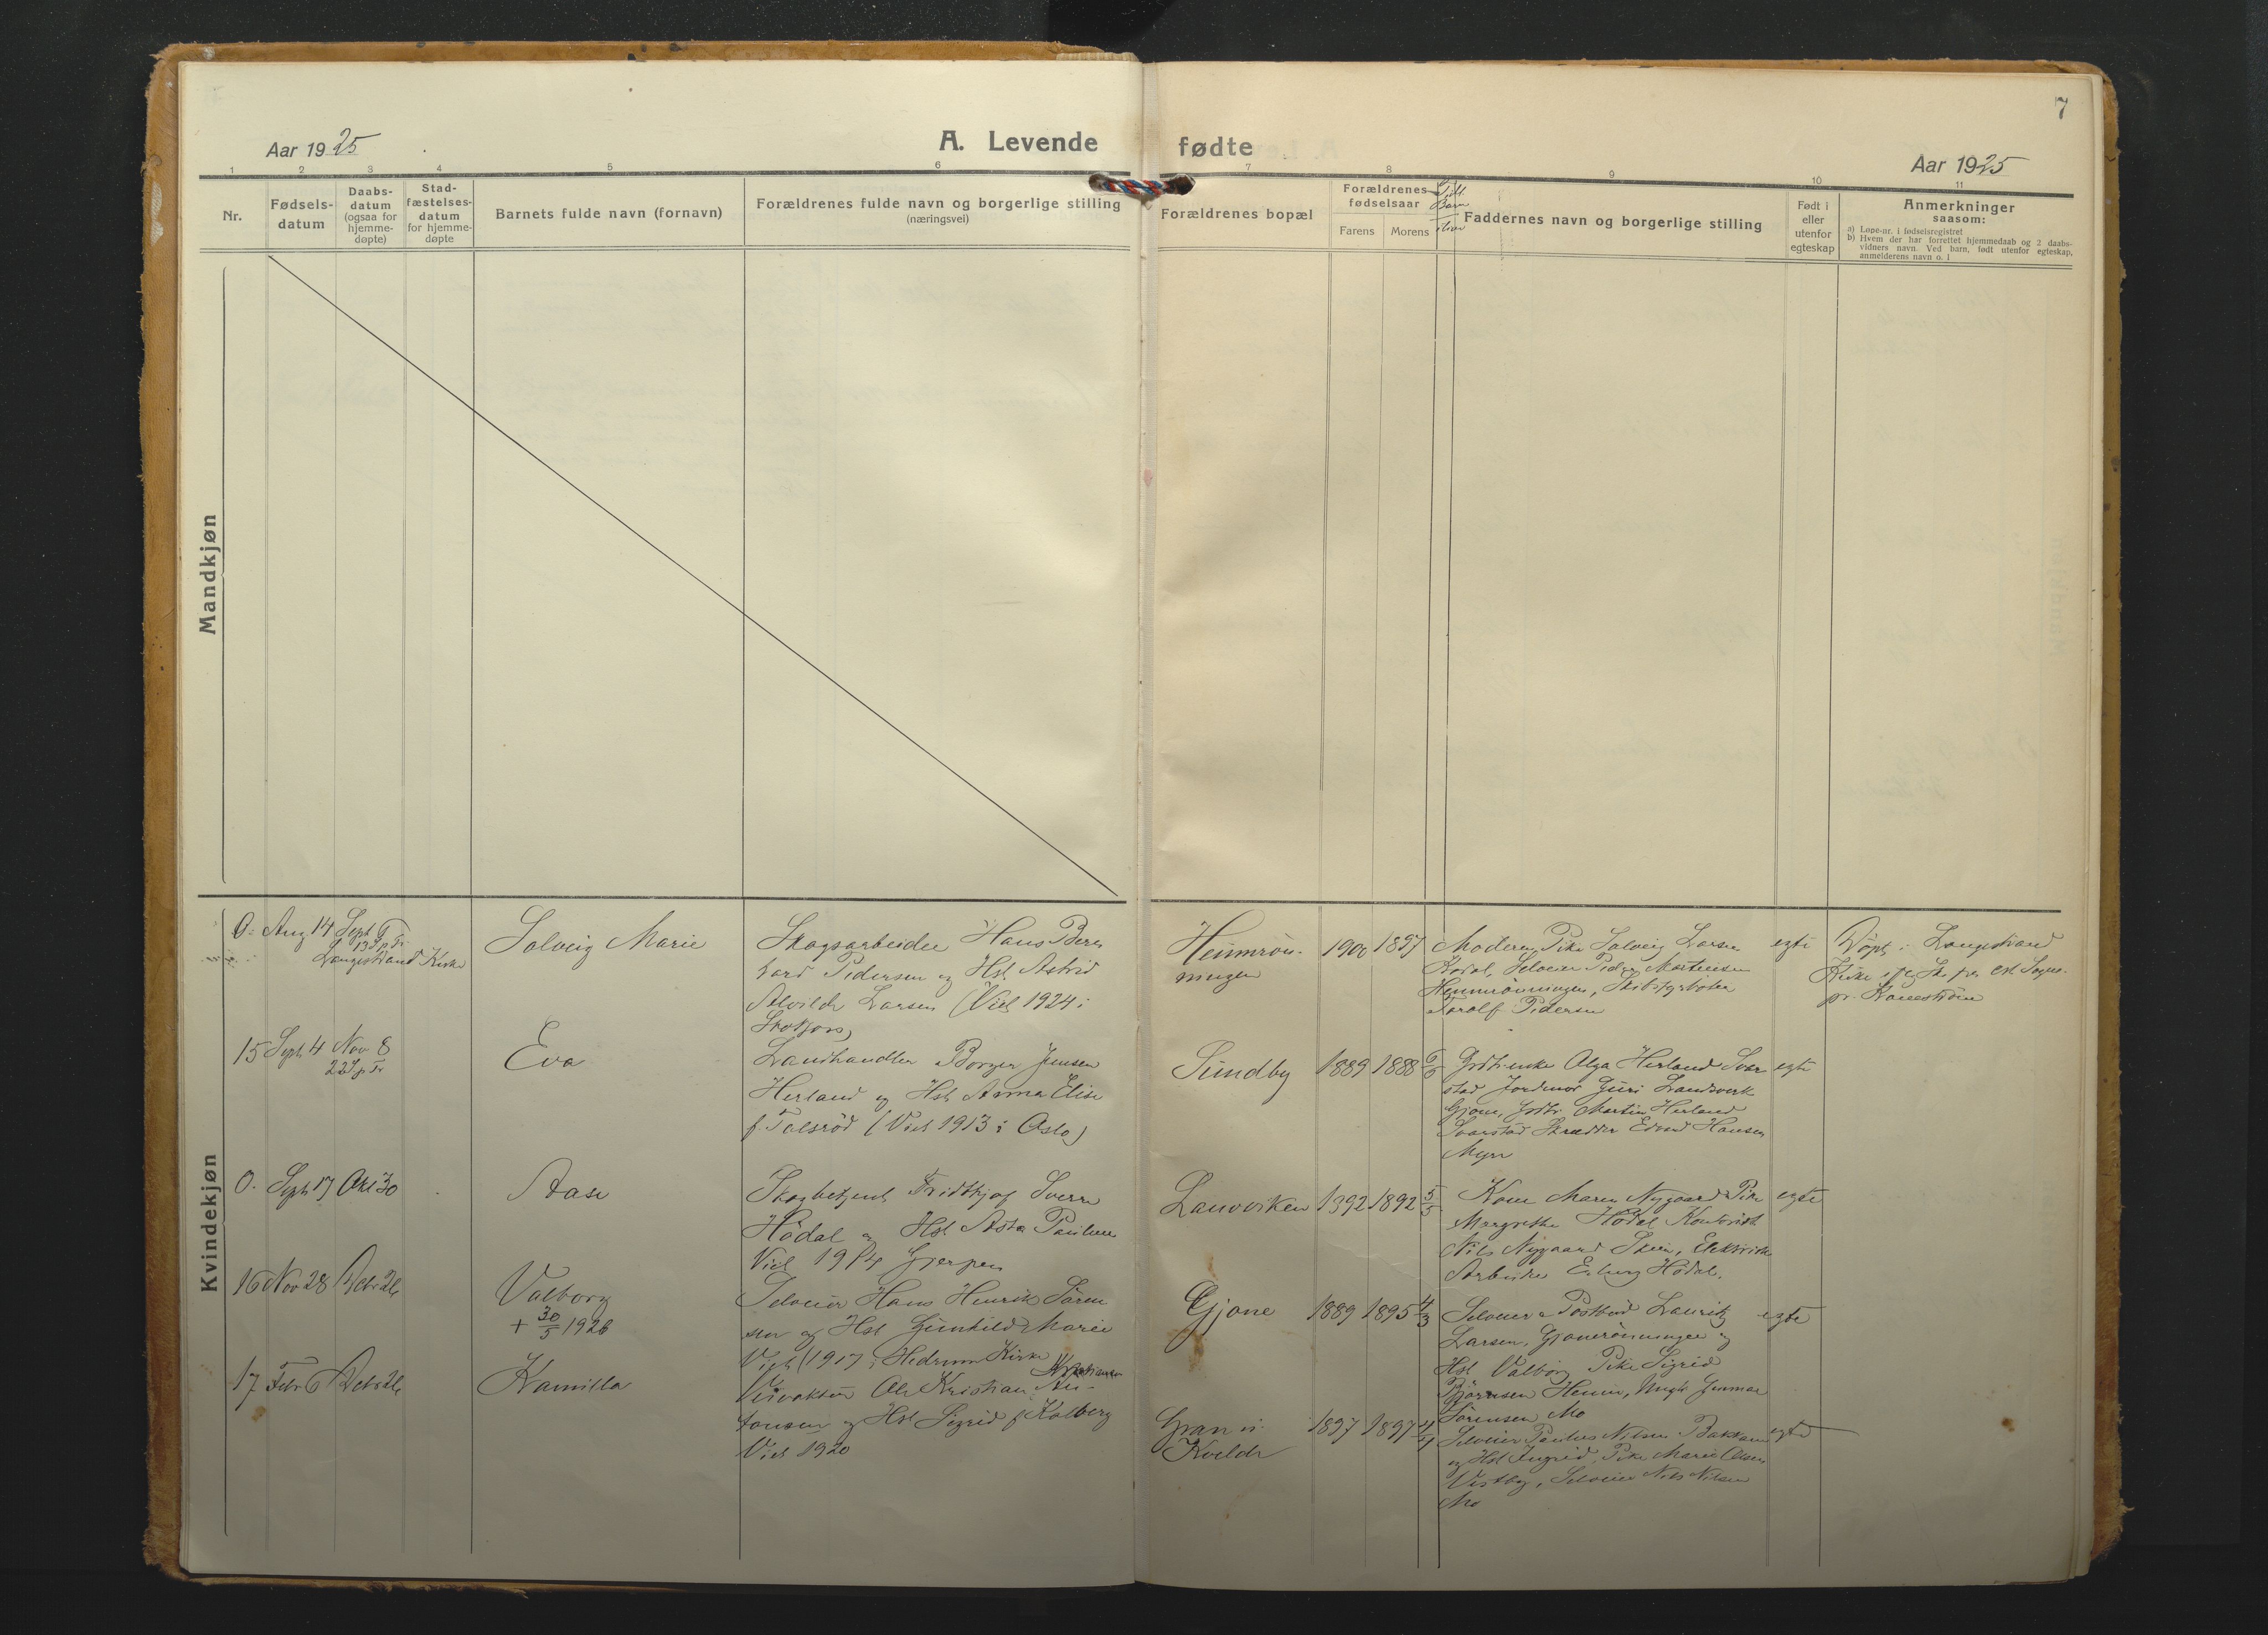 7
Aar 1925
A. Levende fødte
Aar 1925
1 2 3 4 5 6 7 8 9 10 11
Nr.
Fødsels-
datum
Daabs-
datum
(ogsaa for
hjemme-
døpte)
Stad-
fæstelses-
datum
for hjemme-
døpte
Barnets fulde navn (fornavn)
Forældrenes fulde navn og borgerlige stilling
(næringsvei)
Forældrenes bopæl
Forældrenes
fødselsaar
Farens Morens
Faddernes navn og borgerlige stilling
Født i
eller
utenfor
egteskap
Anmerkninger
saasom:
a) Løpe-nr. i fødselsregistret
b) Hvem der har forrettet hjemmedaab og 2 daabs-
vidners navn. Ved barn, født utenfor egteskap,
anmelderens navn o. l
Mandkjøn
Kvindekjøn
0. Aug 14 Sept 6
13 S p. Tr.
Langestrand Kirke
Solveig Marie
Skogsarbeider Hans Bern
hard Pedersen og Hst Astrid
Alvilde Larsen (Viet 1924 i
Heimrön-
ningen
1900 1897
Moderen, Pike Solveig Larsen
Kodal, Selveier Peder Martinsen
Heimrönningen, Skibsfyrböter
Torolf Pedersen
egte
Döpt i Langestrand
Kirke
15 Sept 4 Nov 8
22 S p Tr
Eva
Landhandler Borger Jensen
Herland og Hst Anna Elise
f. Tolsröd (Viet 1913 i Oslo)
Sundby
1889 1888
Olga Herland Svar
stad Jordmor Guri Landsverk
Gjone, Martin Herland
Svarstad Skrædder Edvard Hansen
Myre
egte
0. Sept 17 Okt 30
Aase
Skogbetjent Fridthjof Sverre
Hödal og Hst Asta Paulsen
Viet Gjerpen
Lauvviken
1892 1892 5/5
Kone Maren Nygaard Pike
Margrethe Hödal Kontorist
Nils Nygaard Skien, Elektrisk
Arbeider Erling Hödal.
egte
16 Nov 28 Debr 26
Valborg
+ 30/5 1926
Selveier Hans Henrik Sören
sen og Hst Gunhild Marie
Viet (1917 i Hedrum Kirke
Gjone
1889 1895 4/3
Selveier og Postbud Lauritz
Larsen, Gjonerönningen og
Hst Valborg Pike Sigrid
Björnsen Heum, Ungk Gunnar
Sörensen Mo
egte
17 Febr 6 Debr 26
Kamilla
Veivokter Ole Kristian An-
tonsen og Hst Sigrid f Kolberg
Viet 1920
Gran i
Kvelde
1897 1897
Selveier Paulus Nilsen Bakkane
og Hst Ingrid, Pike Marie Olsen
Vestby, Selveier Nils Nilsen
Mo
egte